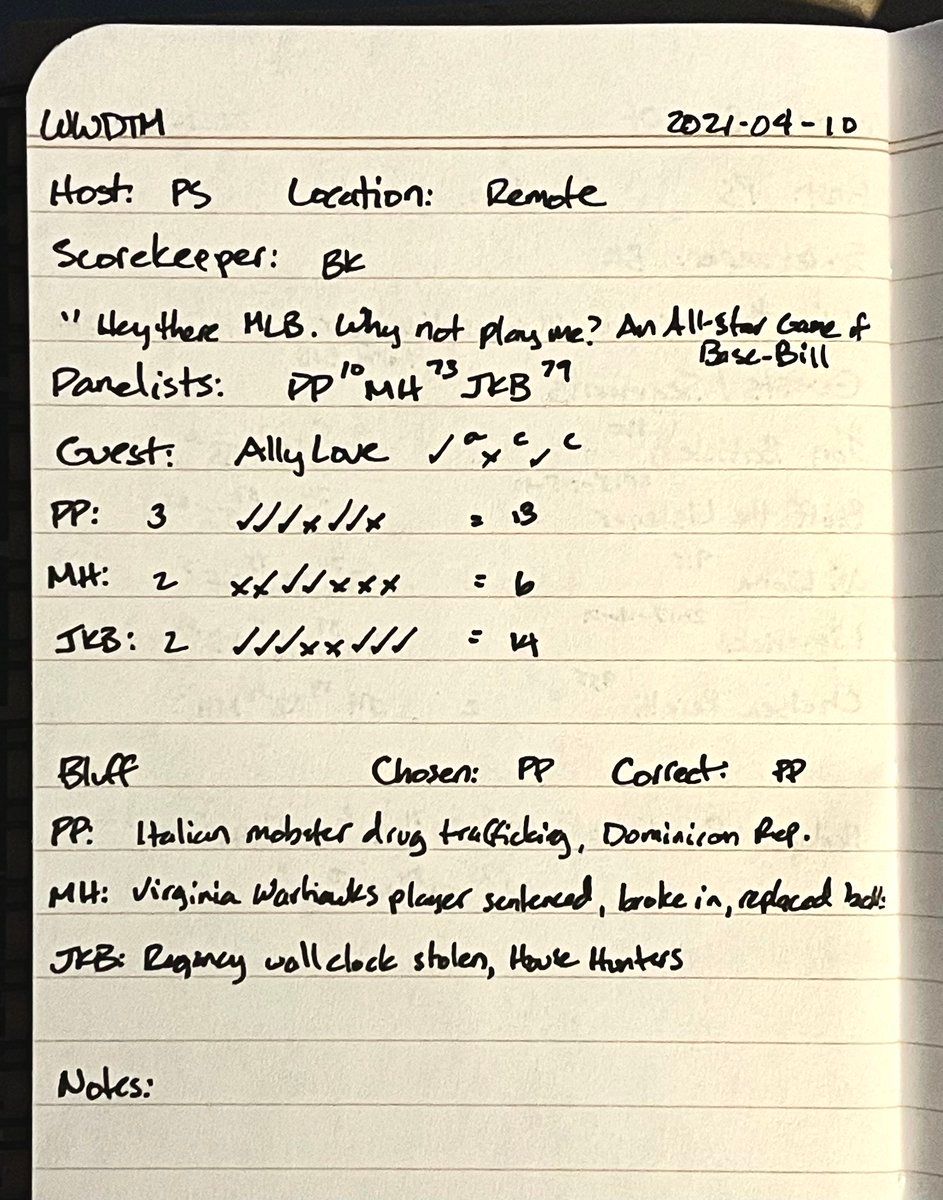 WWDTM 2021-04-10
Host: PS Location: Remote
Scorekeeper: BK
"Hey there MLB. Why not play me? An All-Star Game of
Base-Bill
Panelists: PP 10 MH 73 JKB 79
Guest: Ally Love ✓ a x c ✓ c
PP: 3 ✓✓✓x✓✓x = 13
MH: 2 xx✓✓xxx = 6
JKB: 2 ✓✓✓xx✓✓✓ = 14
Bluff Chosen: PP Correct: PP
PP: Italian mobster drug trafficking, Dominican Rep.
MH: Virginia Warhawks player sentenced, broke in, replaced
JKB: Regency wall clock stolen, House Hunters
Notes: